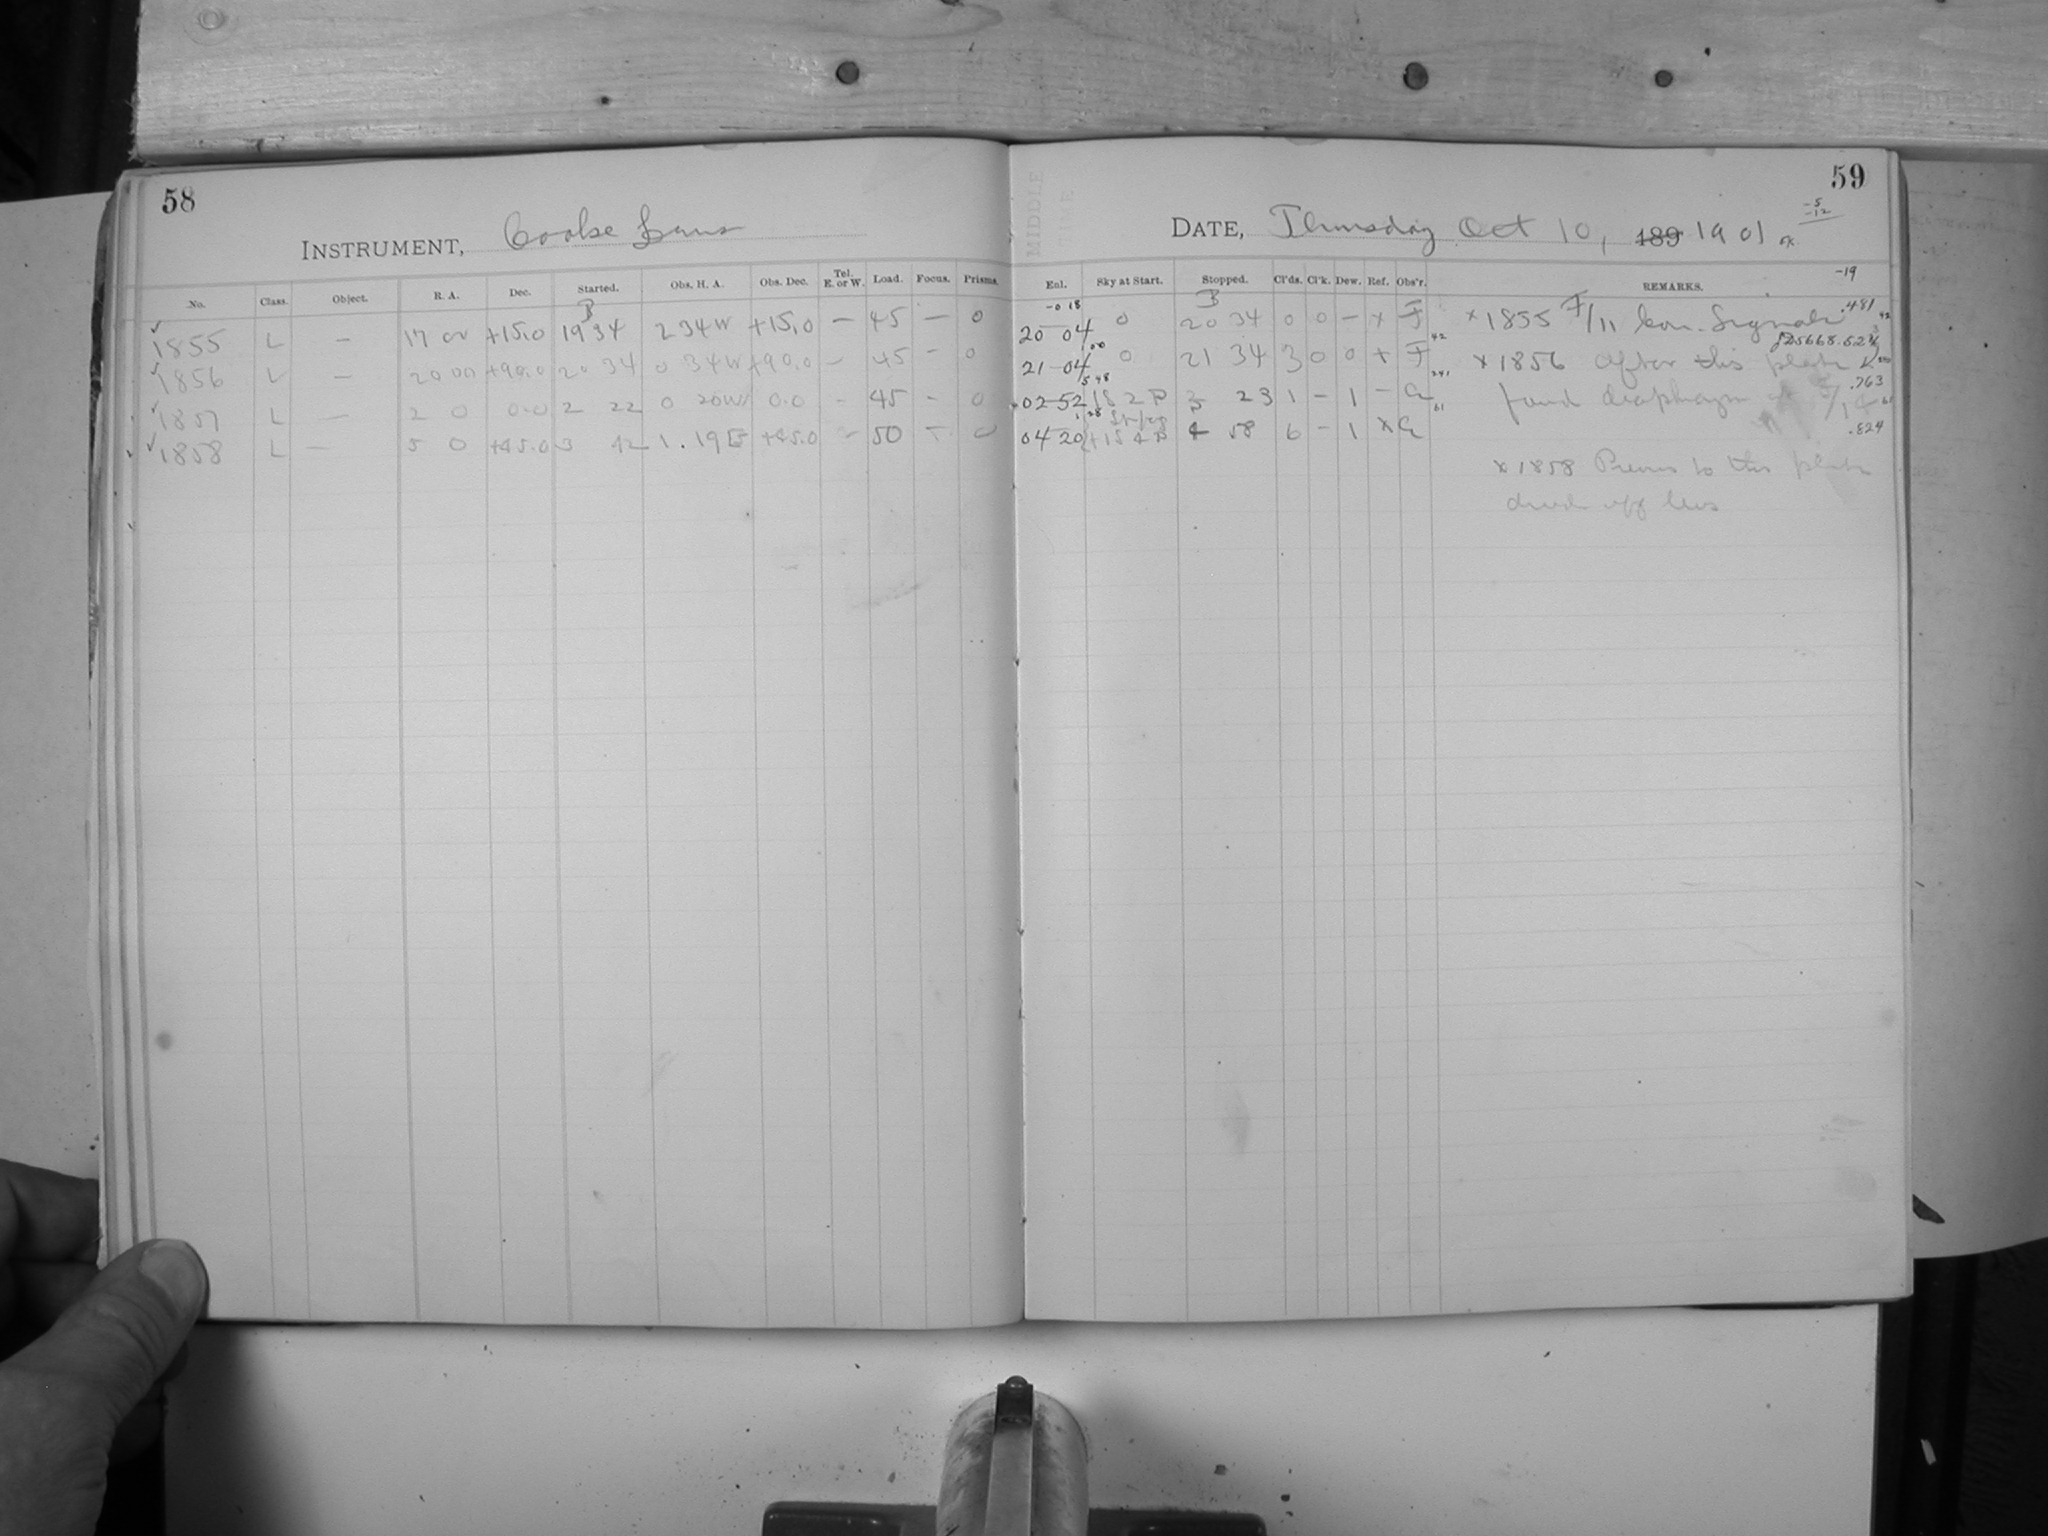 58
INSTRUMENT, Cooke Lens
No. Class. Object. R. A. Dec. Started. Obs. H. A. Obs. Dec. Tel. E. or W. Load. Focus. Prisms.
B
1855 L — 17 00 +15.0 19 34 2 34 W +15.0 — 45 — 0
1856 L — 20 00 +90.0 20 34 0 34 W +90.0 — 45 — 0
1857 L — 2 0 0.0 2 22 0 20 W 0.0 - 45 - 0
1858 L — 5 0 +45.0 3 42 1.19 E +45.0 50 0
59
MIDDLE TIME
DATE, Thursday Oct 10, 189 1901
-5
-12
-19
Enl. Sky at Start. Stopped. Cl'ds. Cl'k. Dew. Ref. Obs'r. REMARKS.
-0 18 B .481
20 04 0 20 34 0 0 — x F 42 x 1855 F/11 Con. Signals
1 00 J25668.523
21 04 0 21 34 3 0 0 x F x 1856 after this plate
5 48 .763
02 52 18 2 P 3 23 1 - 1 - G found diaphragm at
1 28 .824
04 20 15 4 P 4 58 6 - 1 x G
x 1858 Previous to this plate
dried off lens